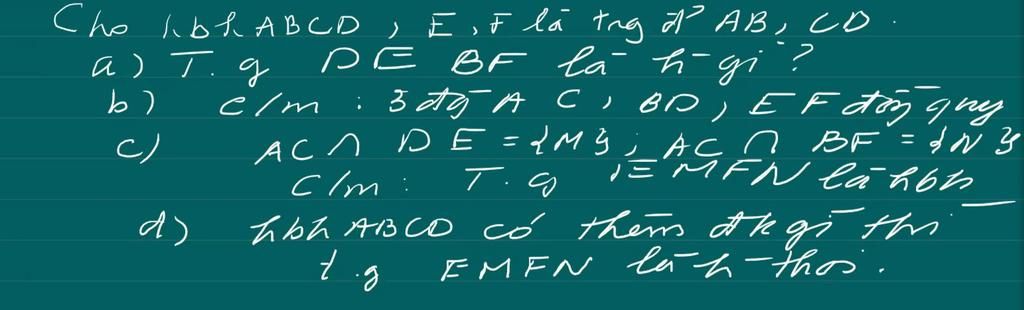 Cho hbh ABCD, E, F là trg đ² AB, CD.
a) T.g DEBF là h-gì?
b) c/m: 3 đg AC, BD, EF đồg quy
c) AC ∩ DE = {M}; AC ∩ BF = {N}
c/m: T.g EMFN là hbh
d) hbh ABCD có thêm đk gì thì
t.g EMFN là h-thoi.